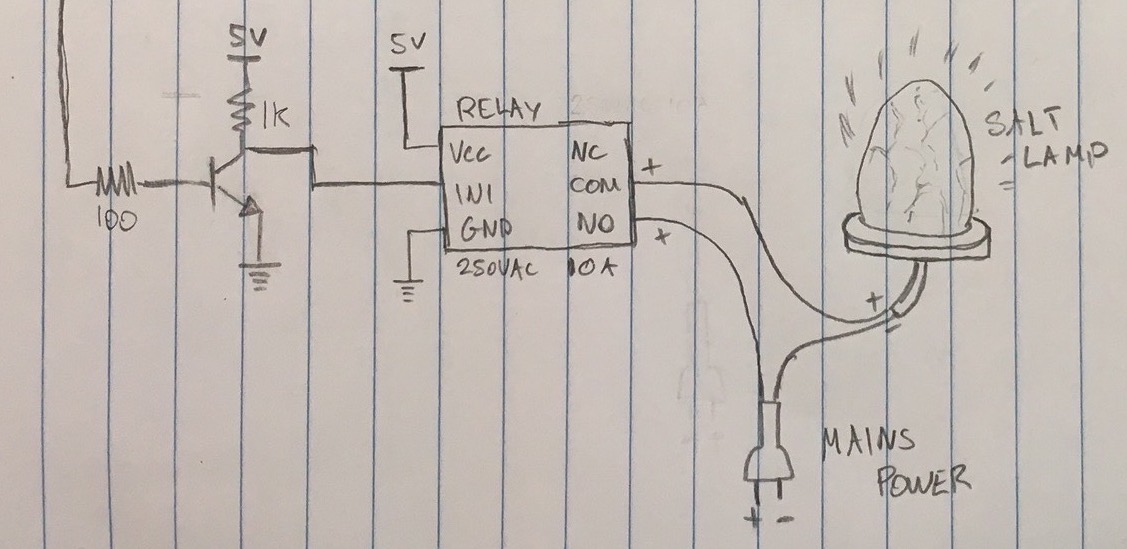 5V
1K
100
5V
RELAY
VCC
IN1
GND
NC
COM
NO
250VAC 10A
+
+
SALT
LAMP
+
-
MAINS
POWER
+ -